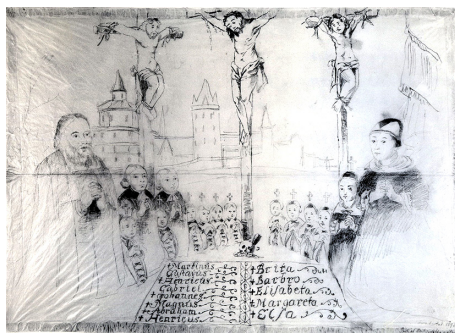 + Martinus
Gustavus
+ Henricus
Gabriel
+ Johannes
+ Magnus
+ Abraham
+ Henricus
+ Brita
+ Barbro
+ Elisabeta
+ Margareta
+ Elsa